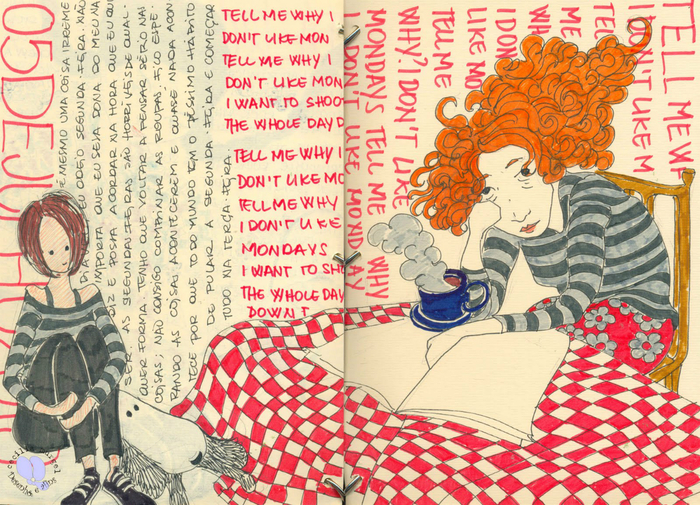 05DEJU
É MESMO UMA COISA IRREME
DIA EU ODEIO SEGUNDA-FEIRA. NÃO
IMPORTA QUE EU SEJA DONA DO MEU NA
DIZ E POSSA ACORDAR NA HORA QUE EU QUI
SER. AS SEGUNDAS-FEIRAS SÃO HORRÍVEIS DE QUAL
QUER FORMA. TENHO QUE VOLTAR A PENSAR SÉRIO NAS
COISAS; NÃO CONSIGO COMBINAR AS ROUPAS; FICO ESPE
RANDO AS COISAS ACONTECEREM E QUASE NADA ACON
TECE POR QUE TODO MUNDO TEM O PÉSSIMO HÁBITO
DE PULAR A SEGUNDA-FEIRA E COMEÇAR
TUDO NA TERÇA-FEIRA.
TELL ME WHY I
DON'T LIKE MON
TELL ME WHY I
DON'T LIKE MON
I WANT TO SHOOT
THE WHOLE DAY D
TELL ME WHY I
DON'T LIKE MO
TELL ME WHY
I DON'T LIKE
MONDAYS
I WANT TO SH
THE WHOLE DAY
DOWN T
TELL ME W
I DON'T LIKE M
TEL
ME
WH
I DON
LIKE MO
TELL ME
WHY? I DON'T LIKE
MONDAYS TELL ME WHY
I DON'T LIKE MONDAY